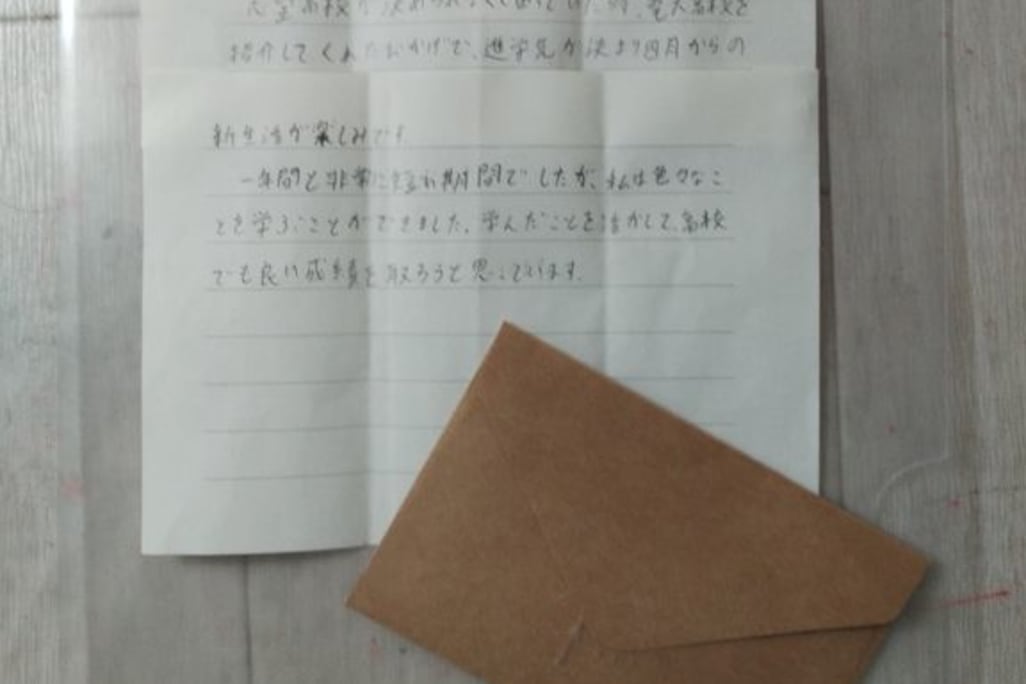 志望高校が決められなくて困っていた時、竜大高校を
紹介してくれたおかげで、進学先が決まり四月からの
新生活が楽しみです
一年間と非常に短い期間でしたが、私は色々なこ
とを学ぶことができました。学んだことを活かして、高校
でも良い成績を取ろうと思っています。